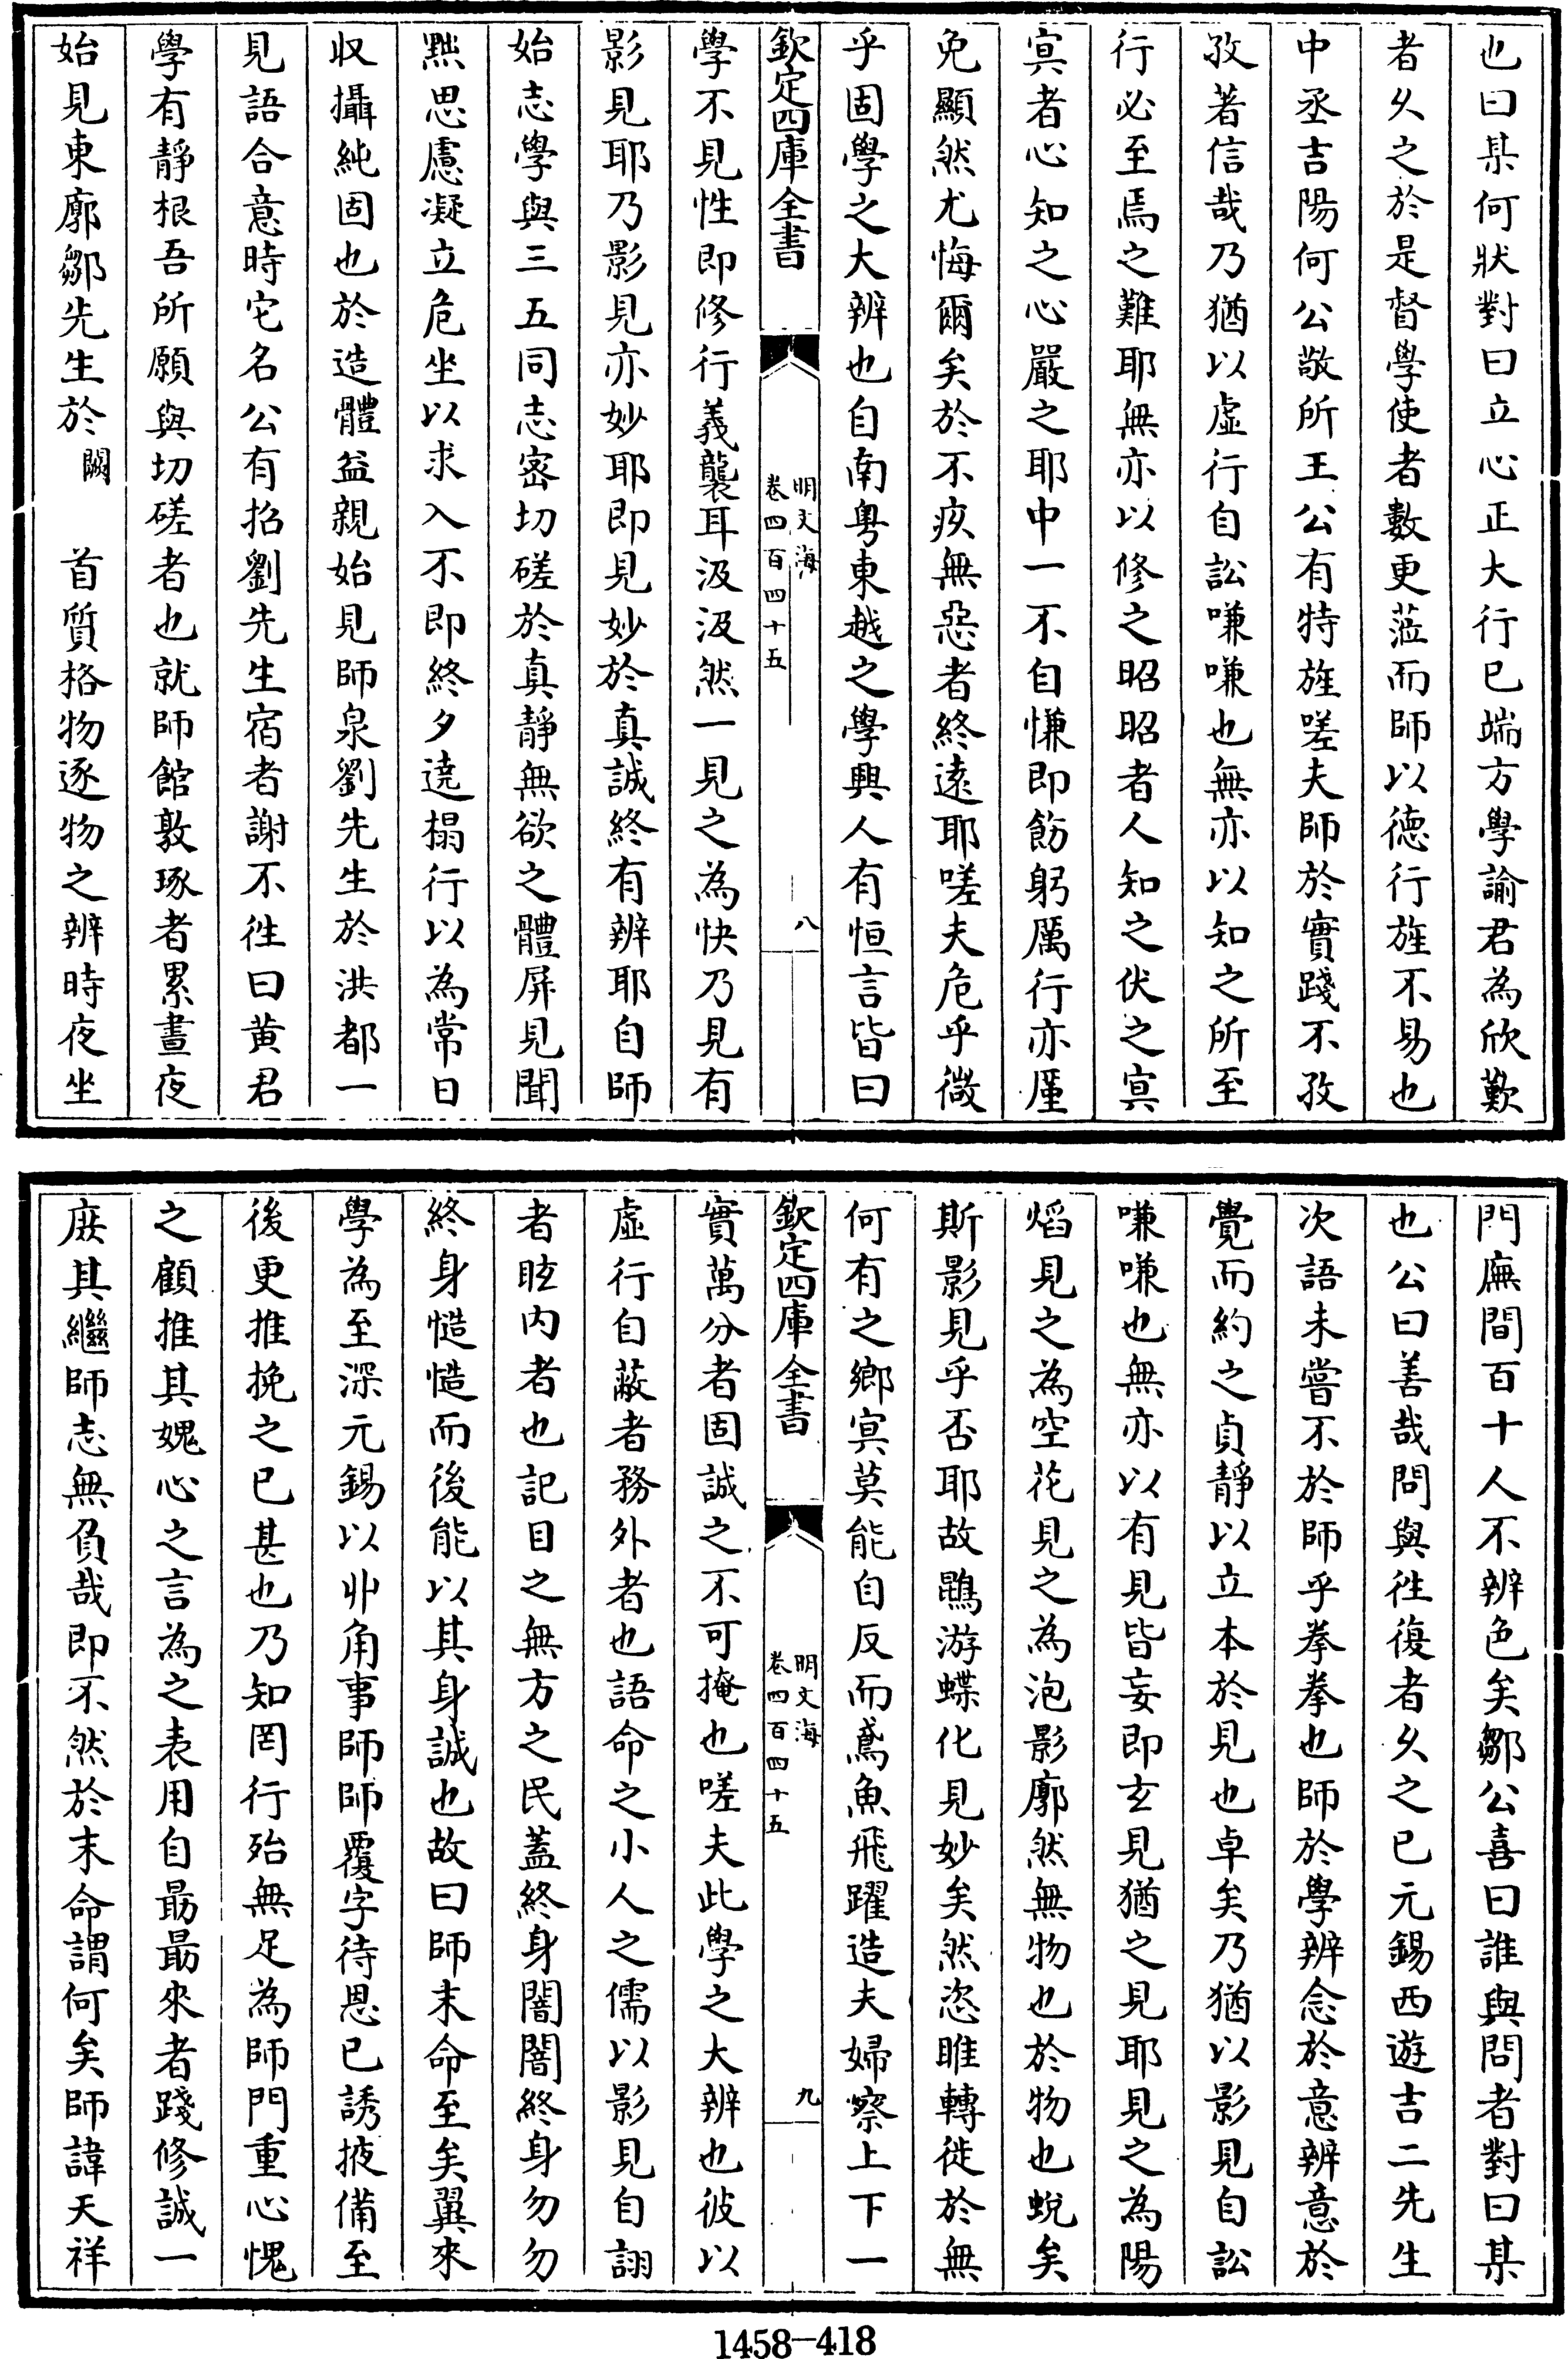 也曰某何狀對曰立心正大行已端方學諭君為欣歎
者久之於是督學使者數更蒞而師以德行旌不易也
中丞吉陽何公敬所王公有特旌嗟夫師於實踐不孜
孜著信哉乃猶以虛行自訟嗛嗛也無亦以知之所至
行必至焉之難耶無亦以修之昭昭者人知之伏之冥
冥者心知之心嚴之耶中一不自慊即飭躬厲行亦厪
免顯然尤悔爾矣於不疚無惡者終遠耶嗟夫危乎微
乎固學之大辨也自南粤東越之學興人有恒言皆曰
欽定四庫全書
明文海
卷四百四十五
八
學不見性即修行義襲耳汲汲然一見之為快乃見有
影見耶乃影見亦妙耶即見妙於真誠終有辨耶自師
始志學與三五同志宻切磋於真靜無欲之體屏見聞
㸃思慮凝立危坐以求入不即終夕遶榻行以為常日
収攝純固也於造體益親始見師泉劉先生於洪都一
見語合意時它名公有招劉先生宿者謝不徃曰黄君
學有靜根吾所願與切磋者也就師館敦琢者累晝夜
始見東廓鄒先生於闕首質格物逐物之辨時夜坐
門廡間百十人不辨色矣鄒公喜曰誰與問者對曰某
也公曰善哉問與徃復者久之已元錫西遊吉二先生
次語未嘗不於師乎拳拳也師於學辨念於意辨意於
覺而約之貞靜以立本於見也卓矣乃猶以影見自訟
嗛嗛也無亦以有見皆妄即玄見猶之見耶見之為陽
熖見之為空花見之為泡影廓然無物也於物也蛻矣
斯影見乎否耶故鵾游蝶化見妙矣然恣睢轉徙於無
何有之鄉冥莫能自反而鳶魚飛躍造夫婦察上下一
欽定四庫全書
明文海
卷四百四十五
九
實萬分者固誠之不可掩也嗟夫此學之大辨也彼以
虛行自蔽者務外者也語命之小人之儒以影見自詡
者眩内者也記目之無方之民蓋終身闇闇終身勿勿
終身慥慥而後能以其身誠也故曰師末命至矣翼來
學為至深元錫以丱角事師師覆字待恩已誘掖備至
後更推挽之已甚也乃知罔行殆無足為師門重心愧
之顧推其媿心之言為之表用自朂朂來者踐修誠一
庶其繼師志無負哉即不然於末命謂何矣師諱天祥
1458-418